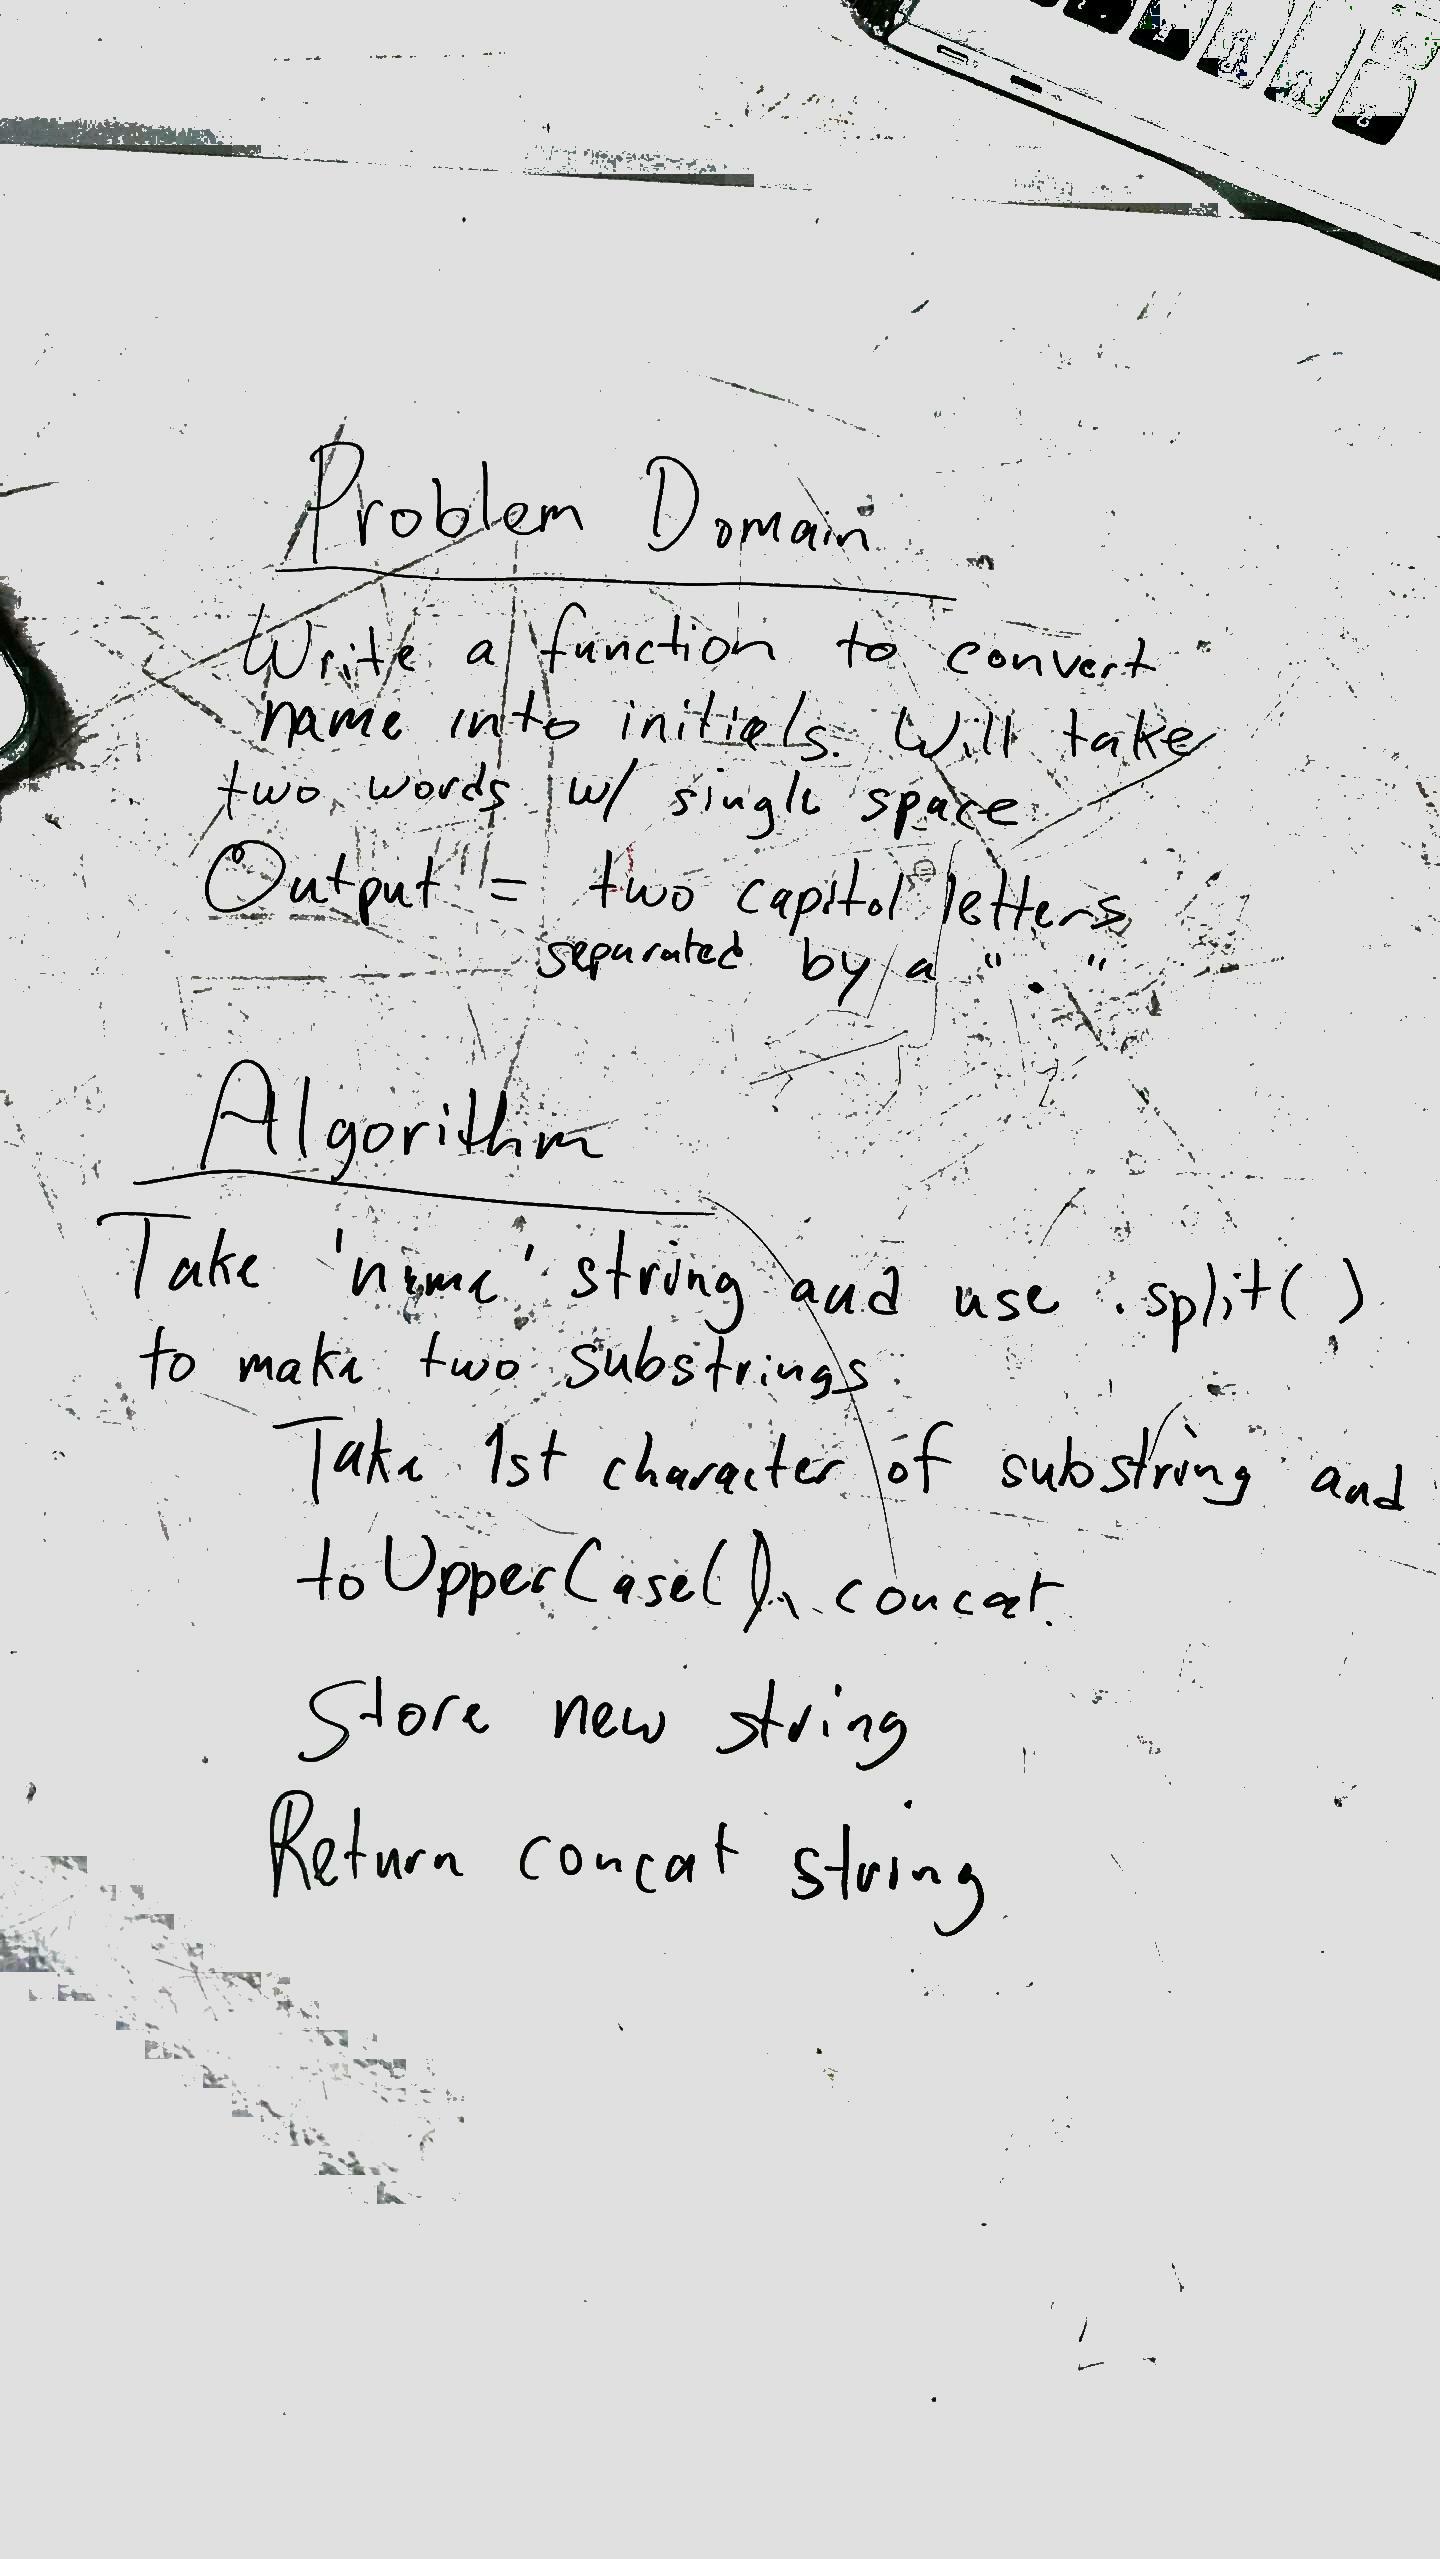 Problem Domain
Write a function to convert
name into initials. Will take
two words w/ single space
Output = two capitol letters
separated by a " . "
Algorithm
Take 'name' string and use .split( )
to make two substrings.
Take 1st character of substring and
toUpperCase( ), concat.
Store new string
Return concat string